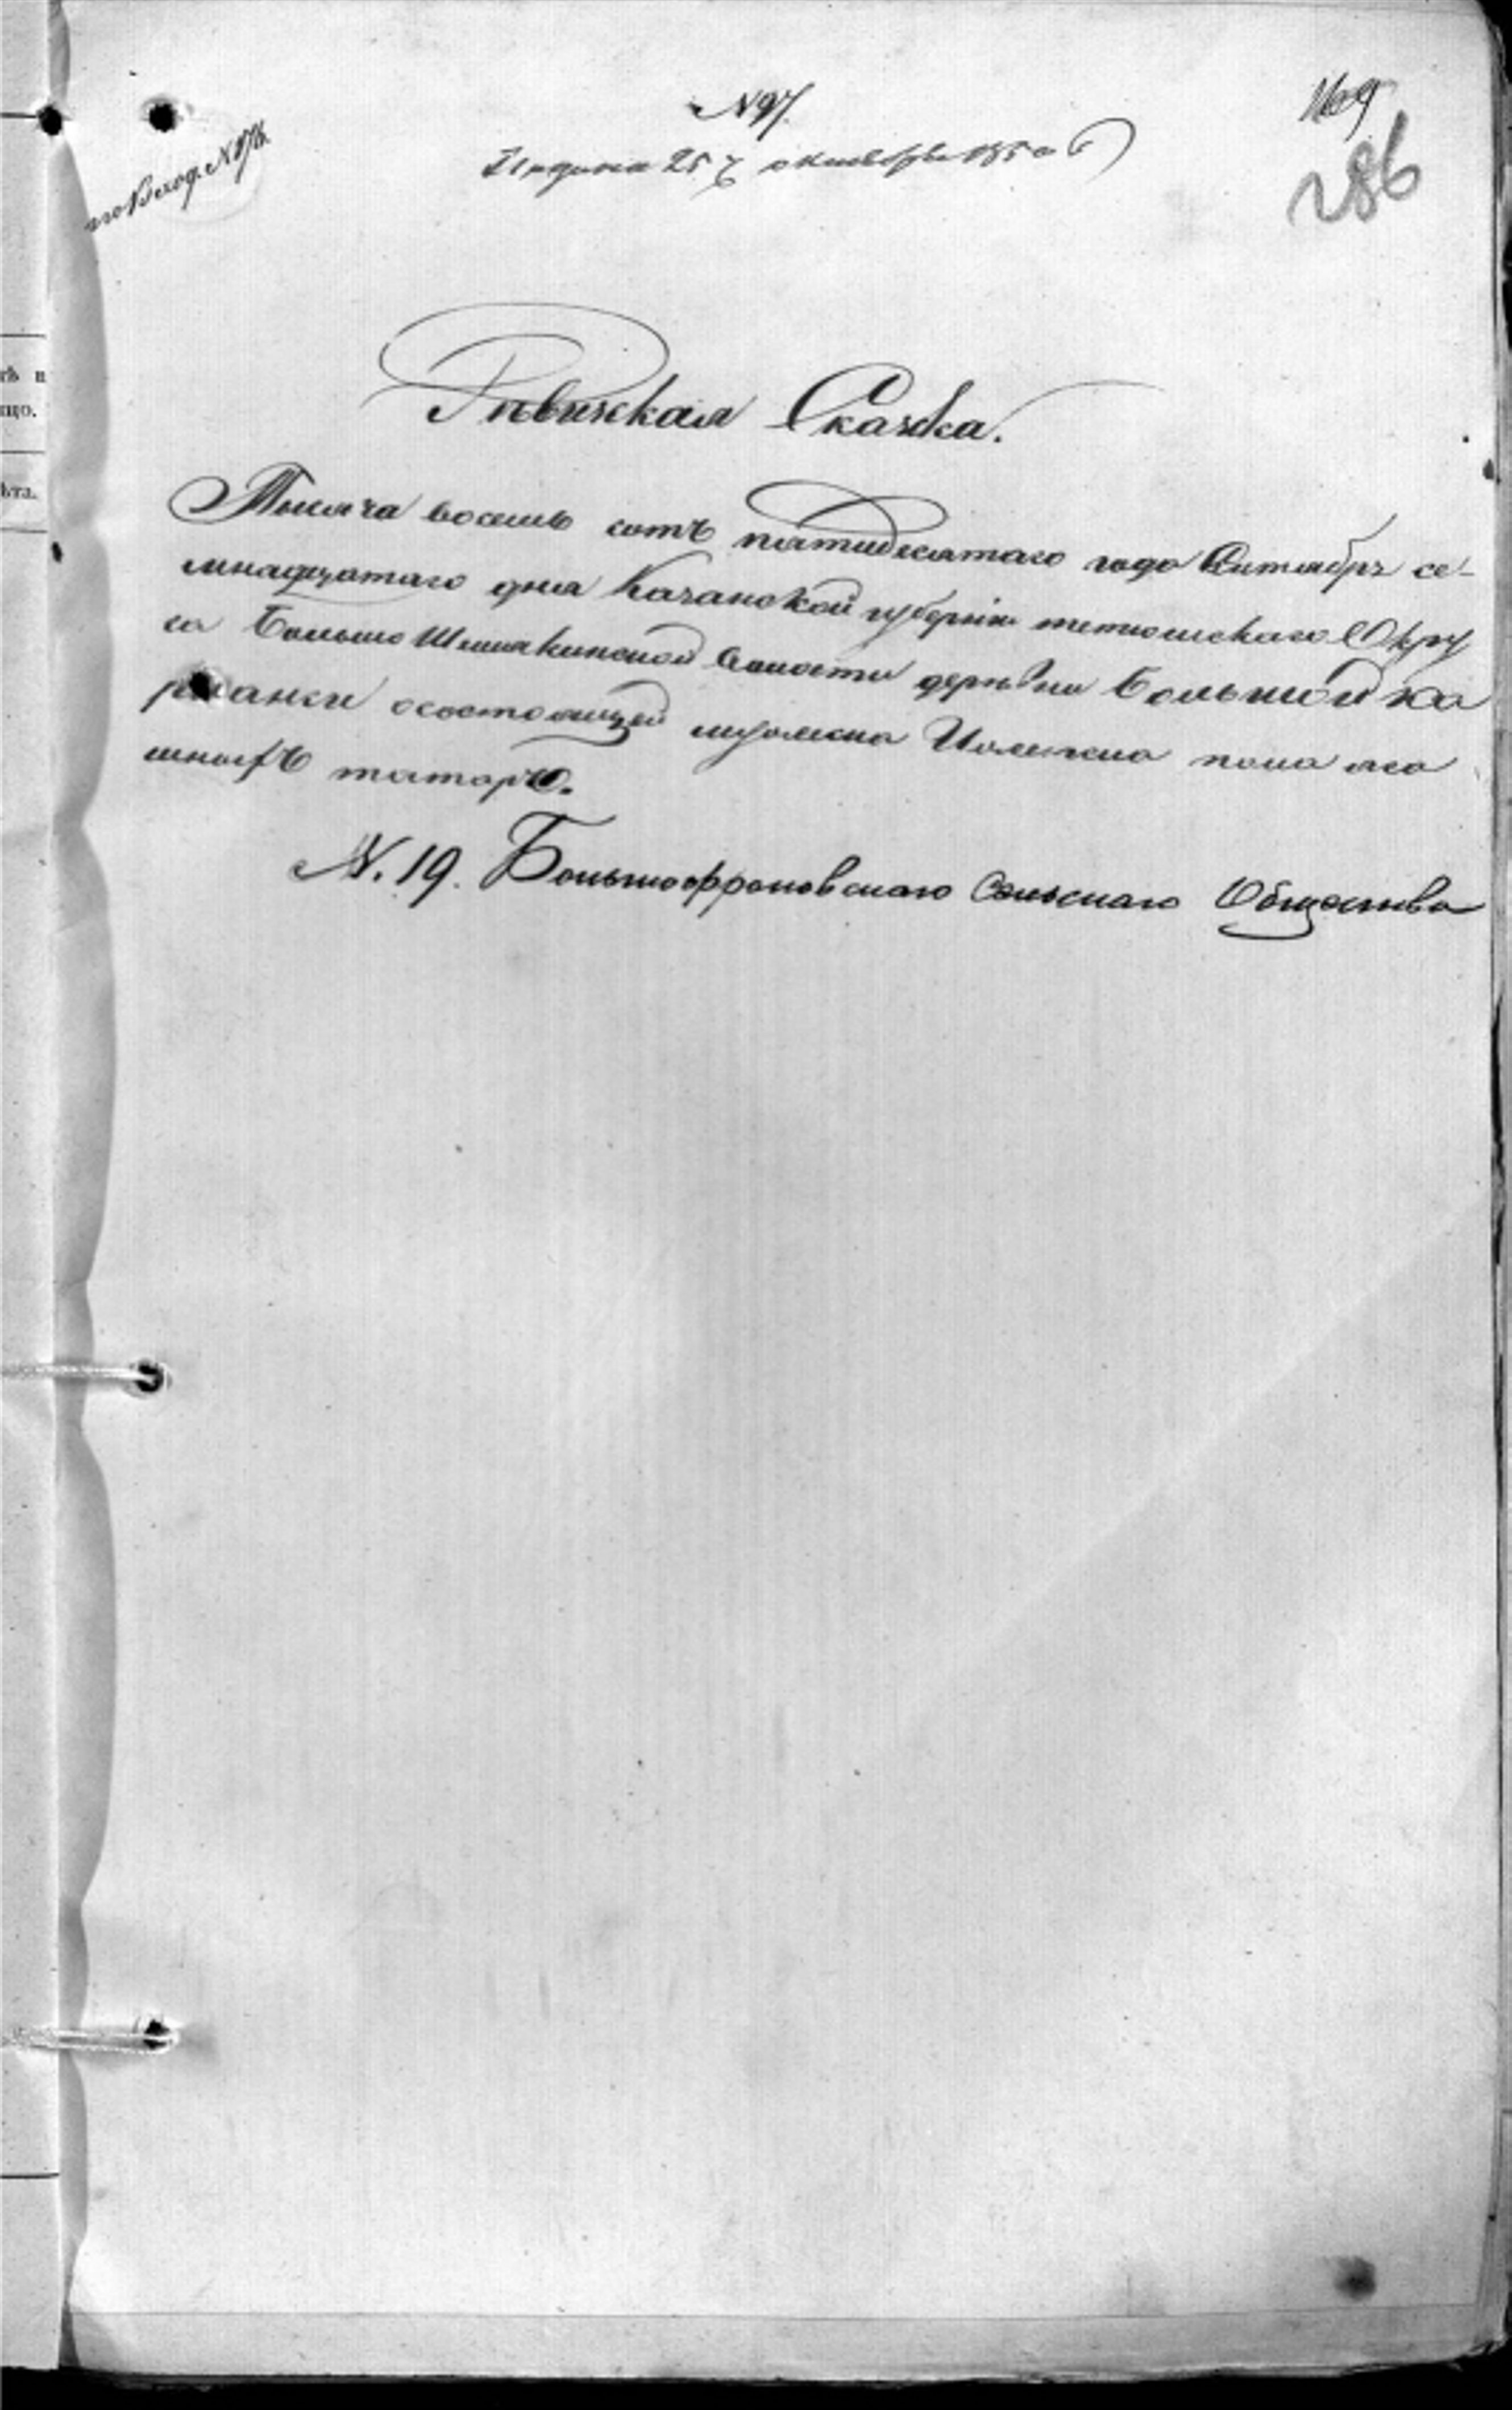 N 97.
Подана 25 октября 1850 г
169
286
по Вход. N
Ревижская Скаska.
Тысяча восемь сотъ пятидесятаго года Сентября се-
мнадцатаго дня Казанской губерніи тетюшскаго Окру
га Большо Шемякинской Волости деревни Большой ка
рланги о состоящей мужеска и женска пола яса
шныхъ татаръ.
N. 19. Большофроловскаго Сельскаго Общества